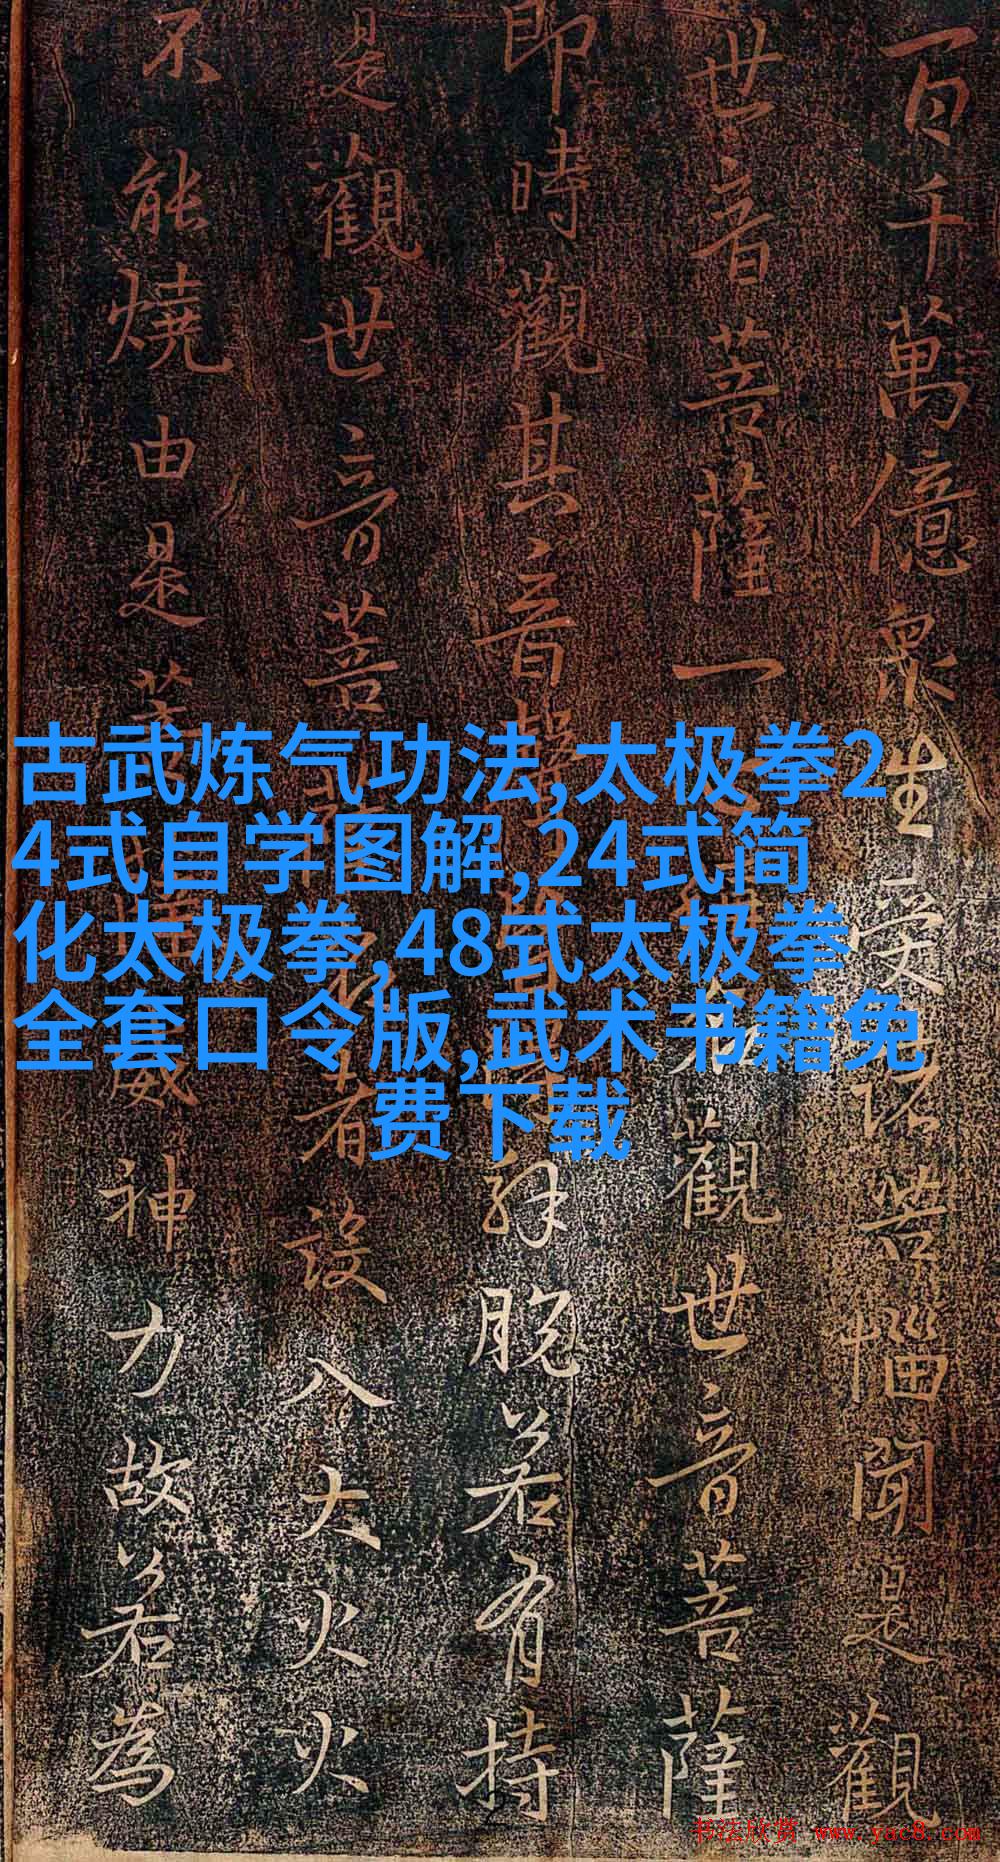 古武炼气功法,太极拳2
4式自学图解,24式简
化太极拳,48式太极拳
全套口令版,武术书籍免
费下载
百千萬億眾生受諸苦惱聞是觀
世音菩薩一心稱名觀世音菩薩
即時觀其音聲皆得解脫若有持
是觀世音菩薩名者設入大火火
不能燒由是菩薩威神力故若為
书法欣赏 www.yac8.com